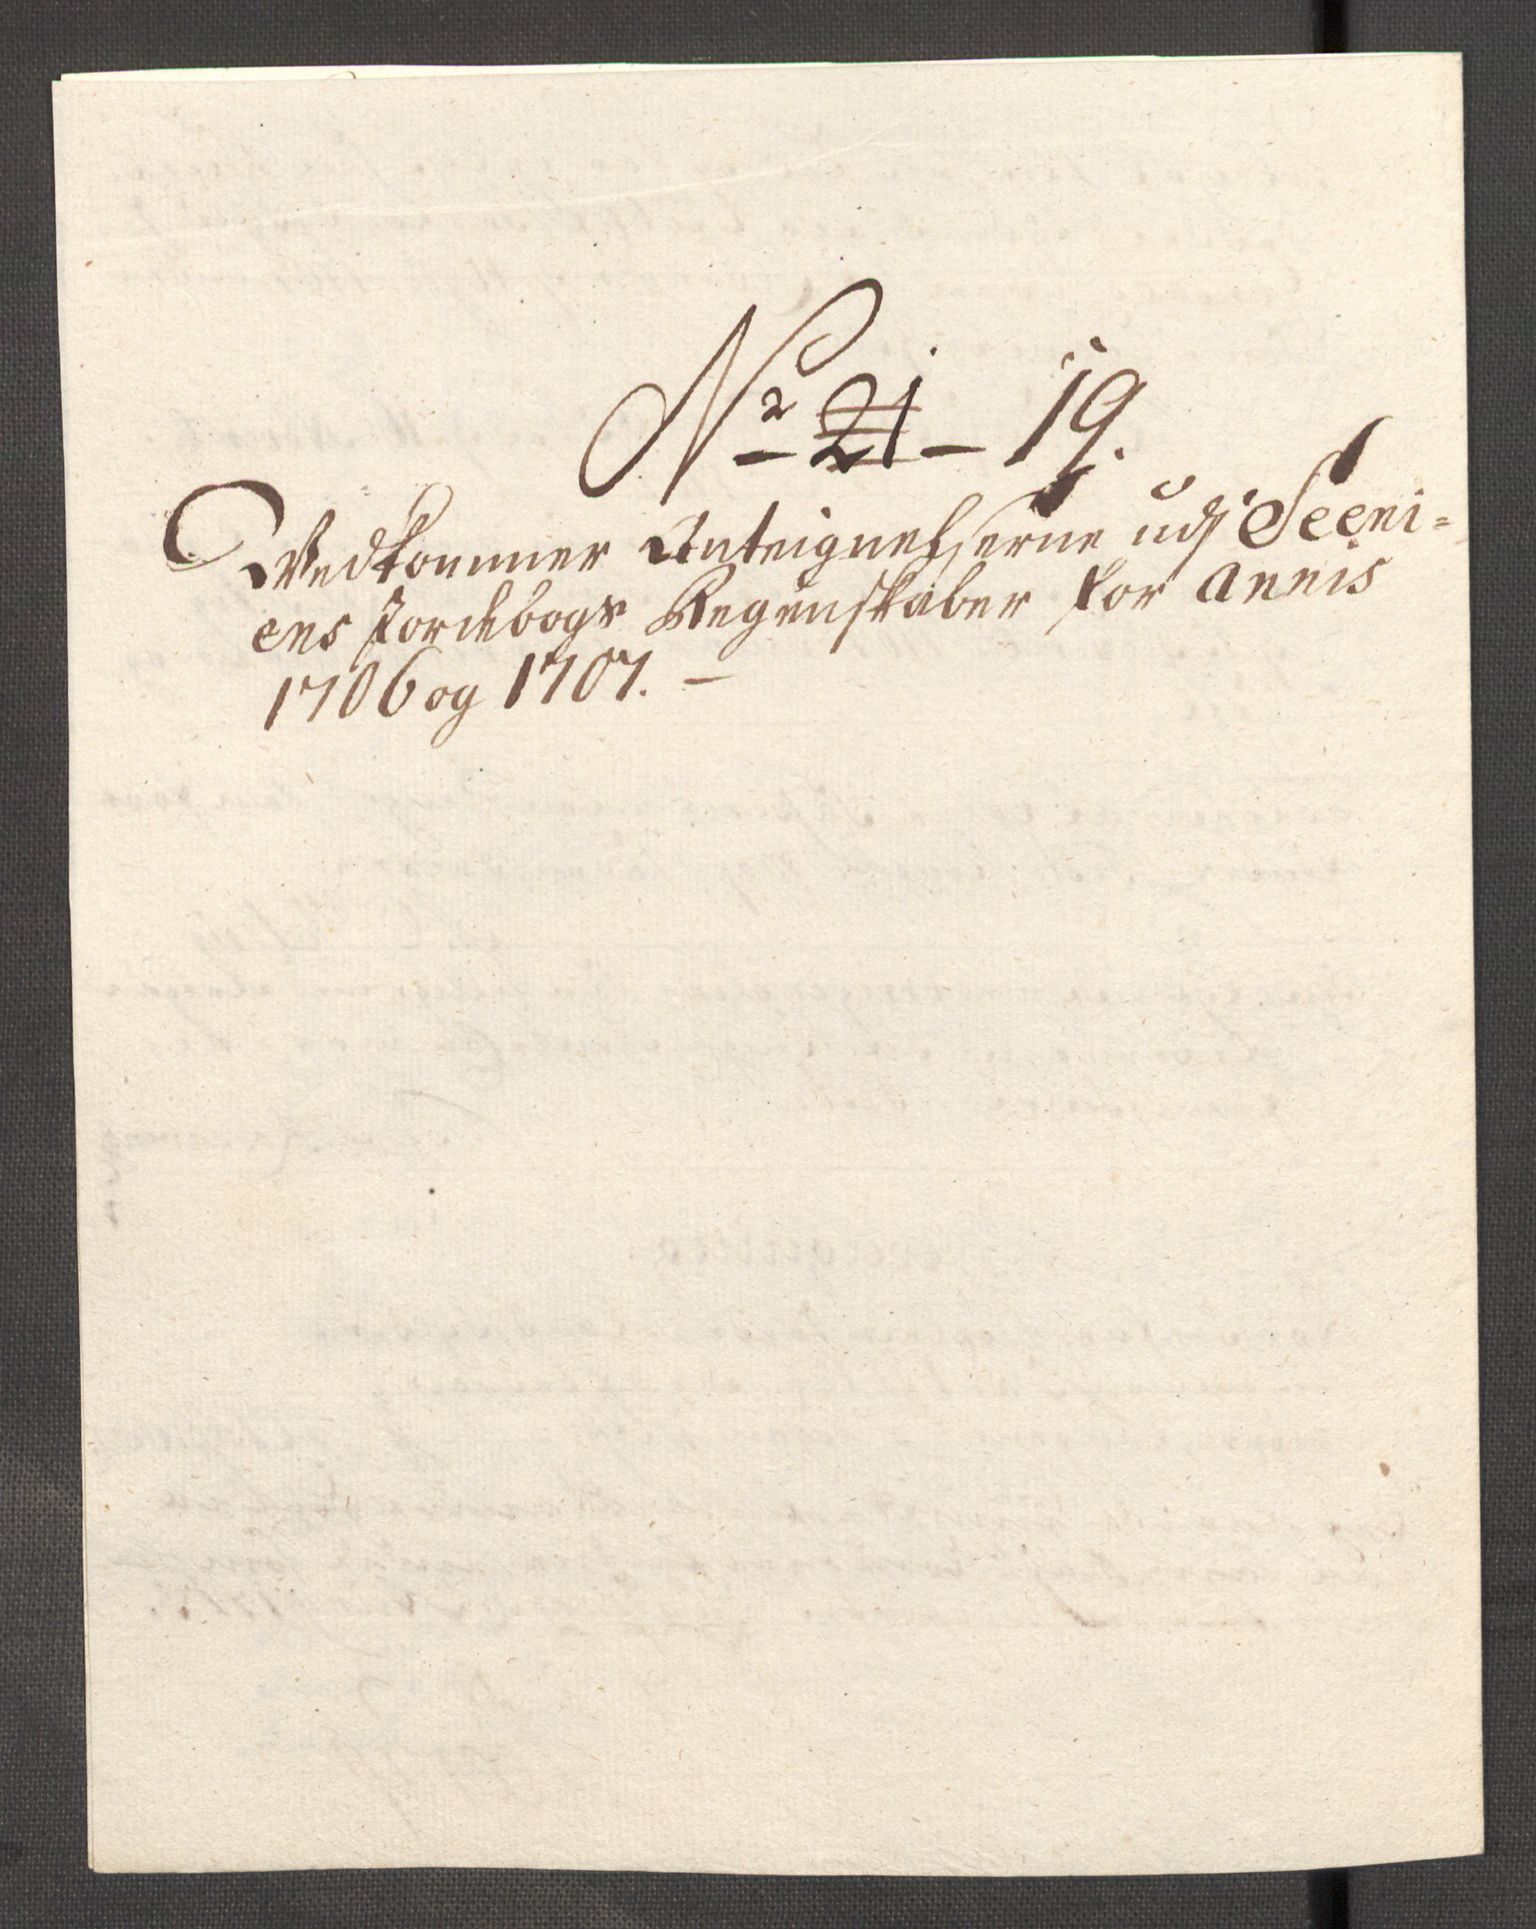 No 21 – 19.
Vedkommer Anteignelsserne udj Seeni-
ens Jordebogs Regenskaber for Annis
1706 og 1707. –